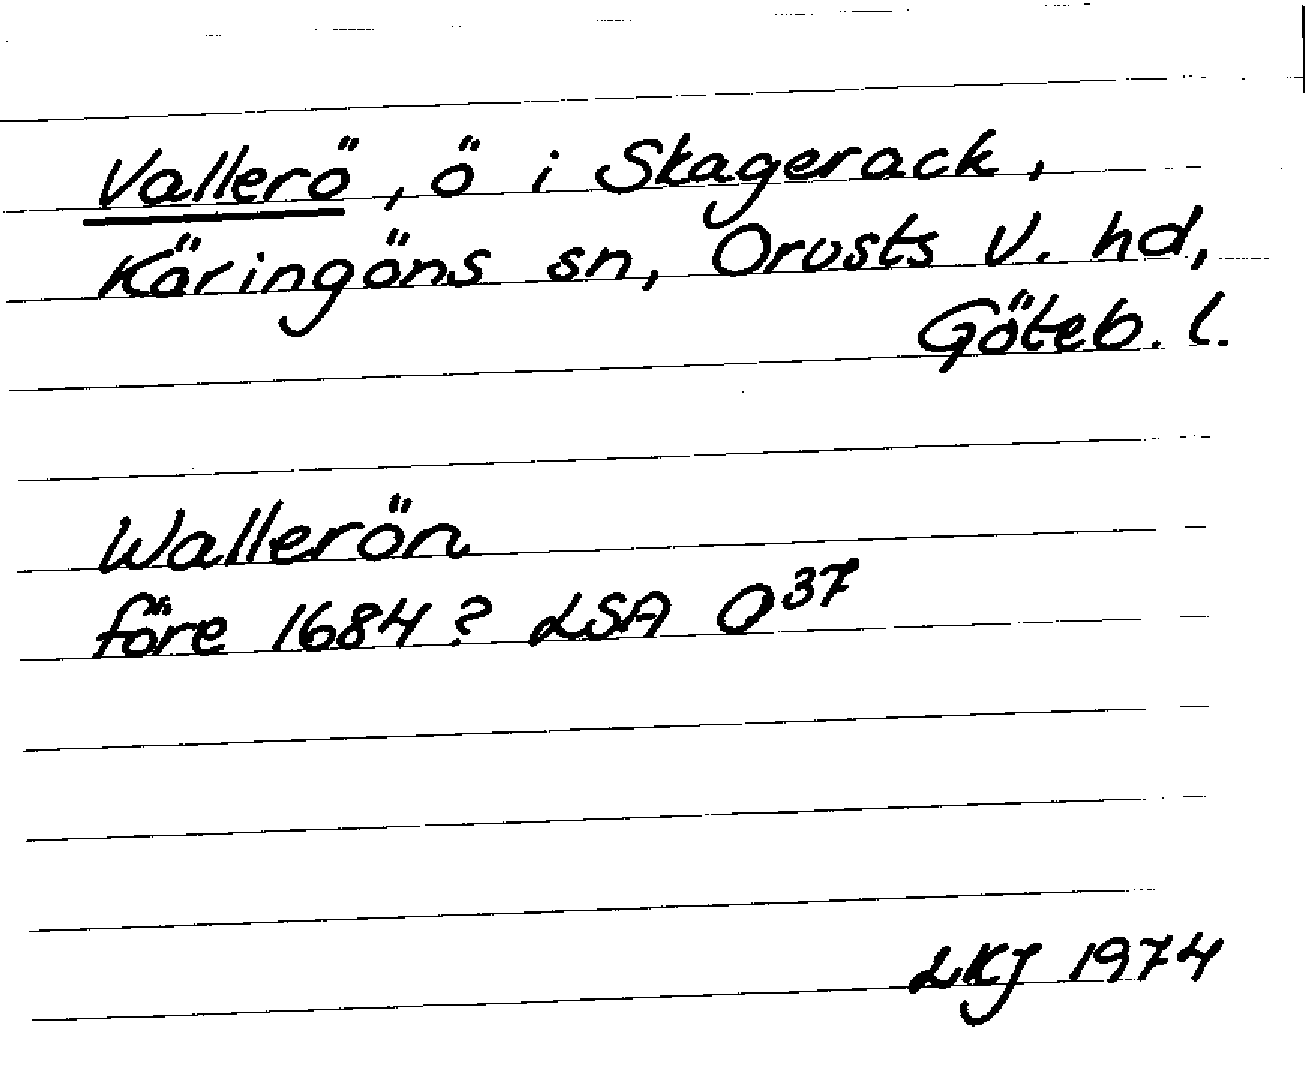 Vallerö, ö i Skagerack,
Käringöns sn, Orusts V. hd,
Göteb. l.
Wallerön
före 1684? LSA O³⁷
LKJ 1974